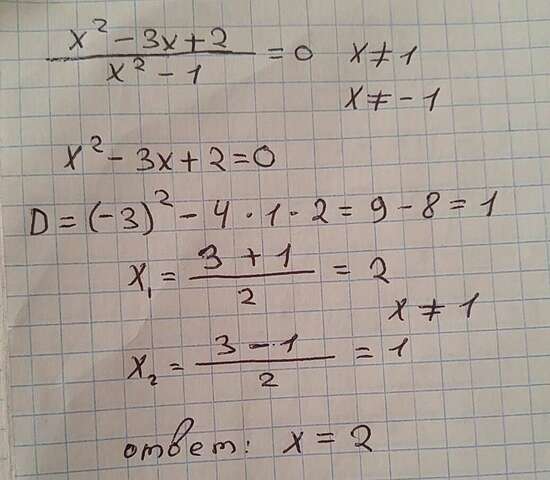 x² - 3x + 2 / x² - 1 = 0   x ≠ 1
x ≠ - 1
x² - 3x + 2 = 0
D = (-3)² - 4 · 1 · 2 = 9 - 8 = 1
x₁ = 3 + 1 / 2 = 2
x ≠ 1
x₂ = 3 - 1 / 2 = 1
ответ: x = 2